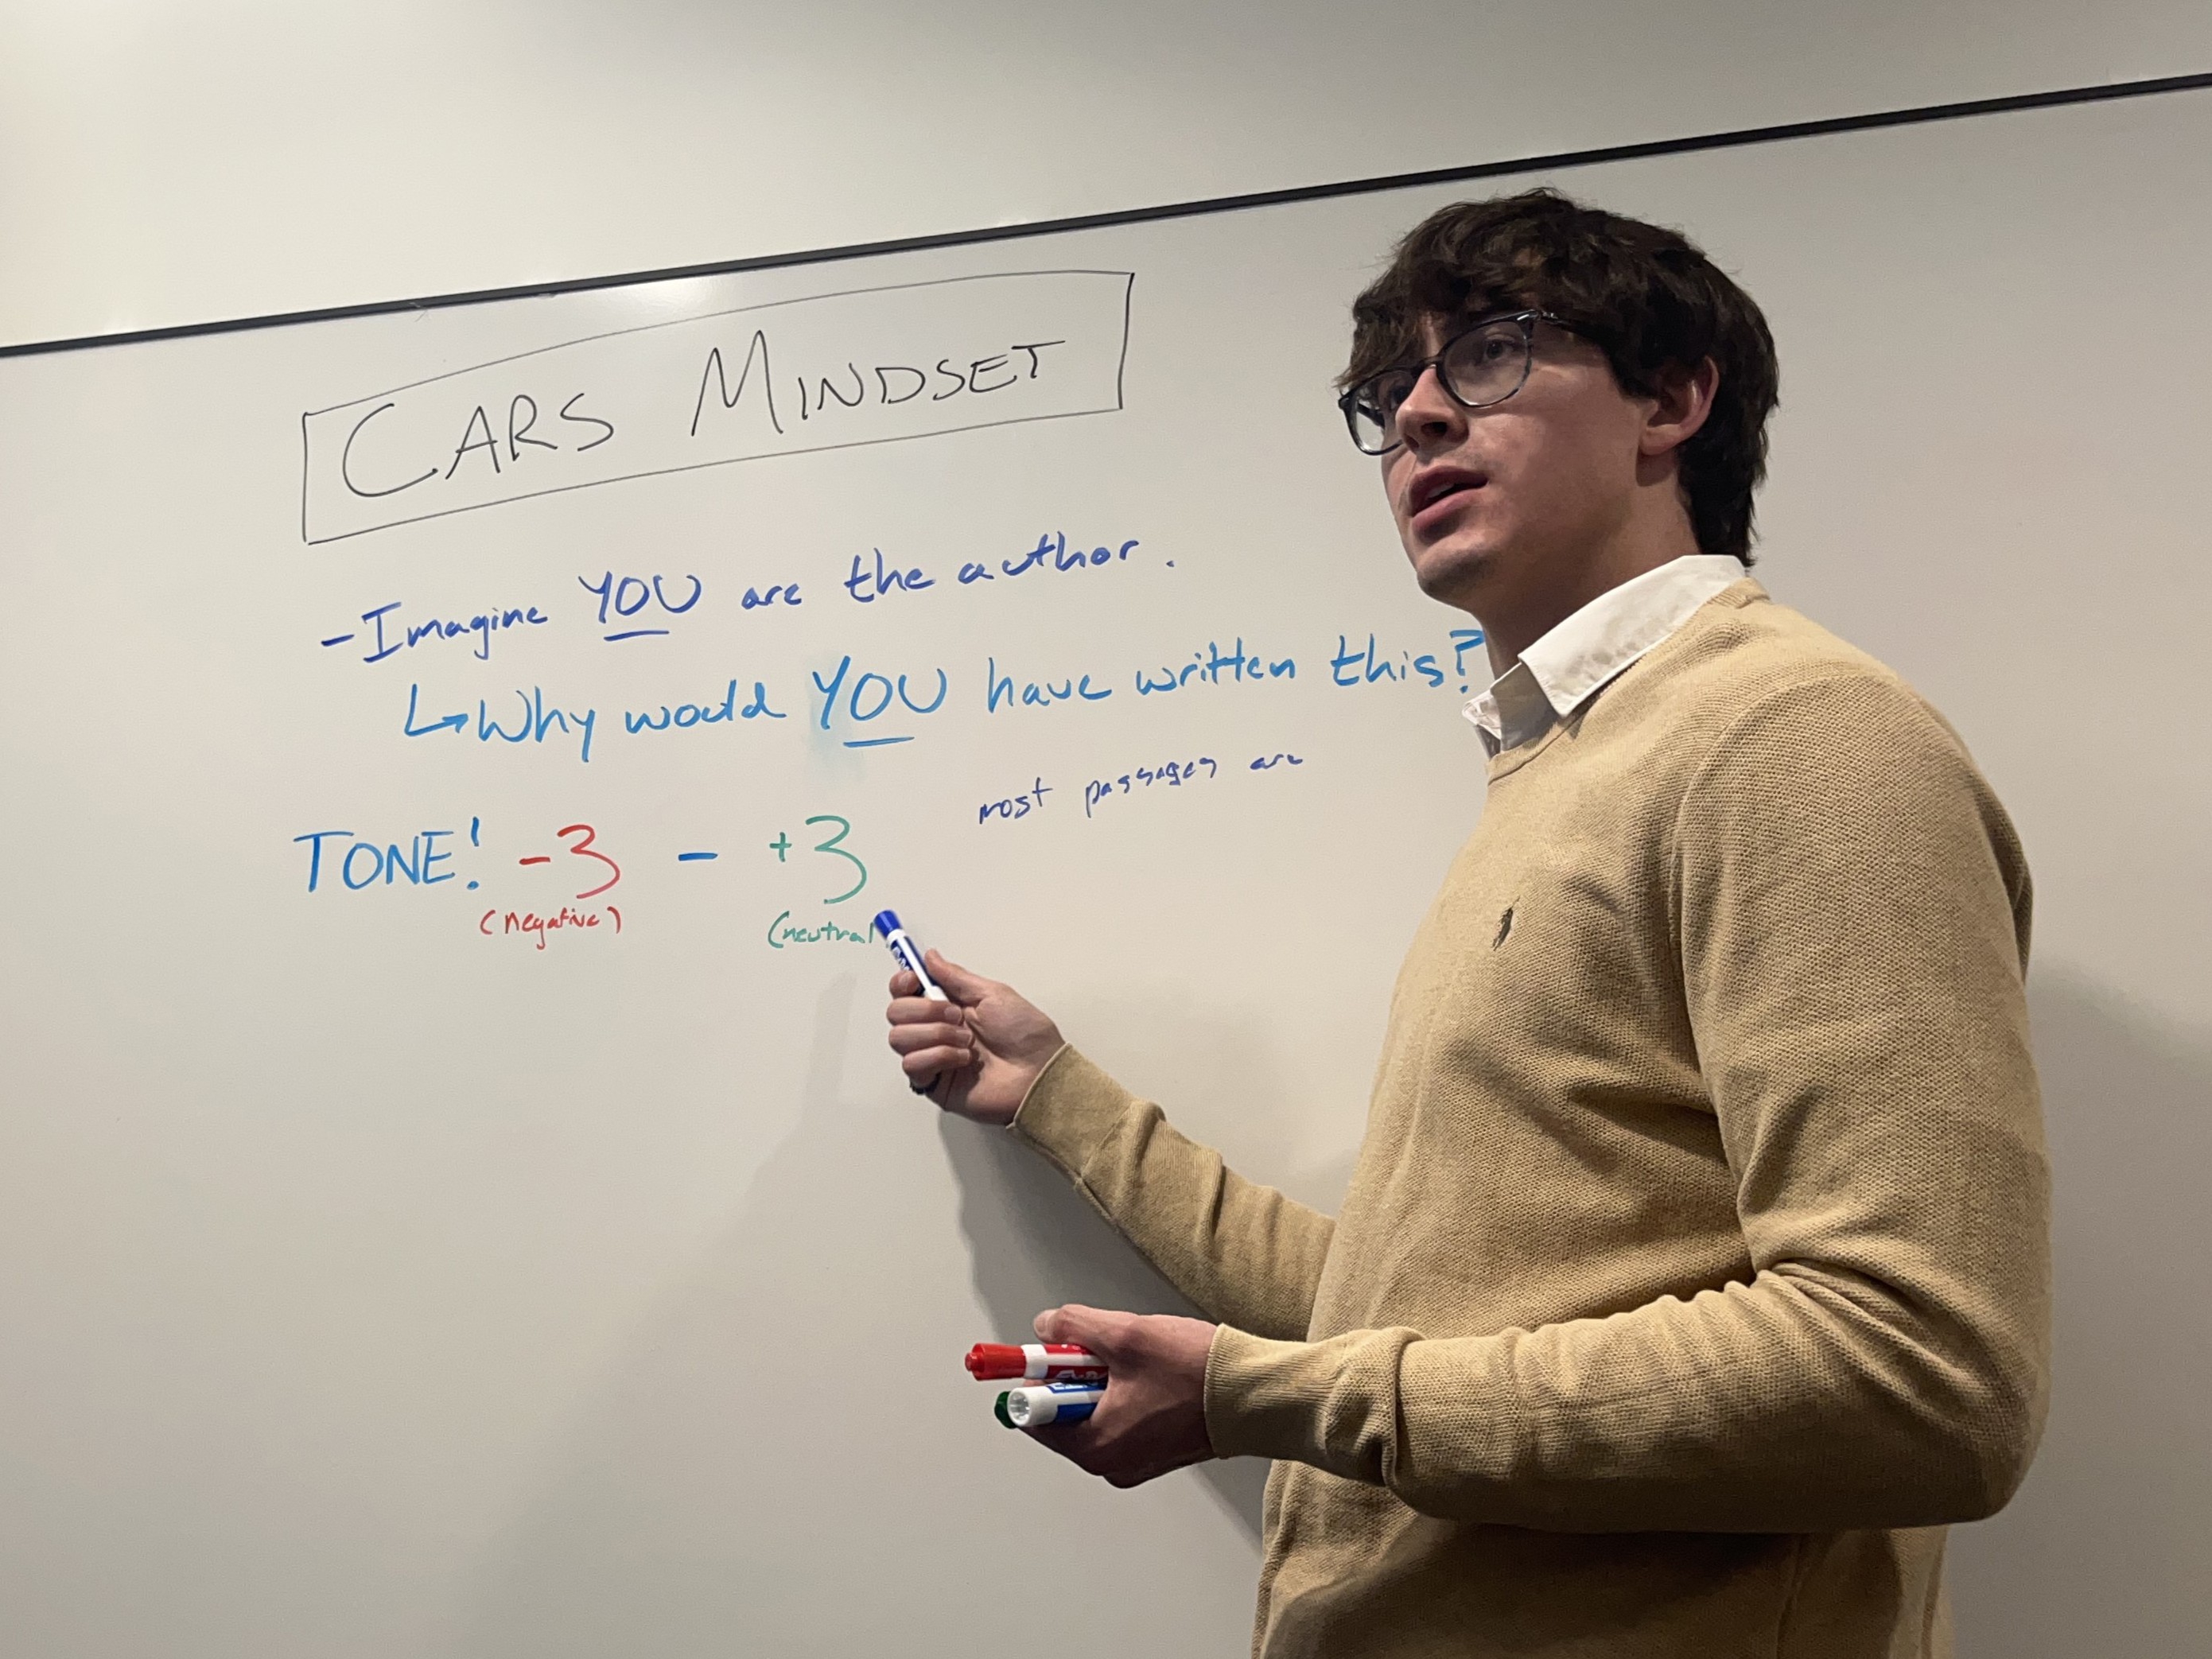 CARS MINDSET
- Imagine YOU are the author.
↳ Why would YOU have written this?
most passages are
TONE! -3 - +3
(negative) (neutral